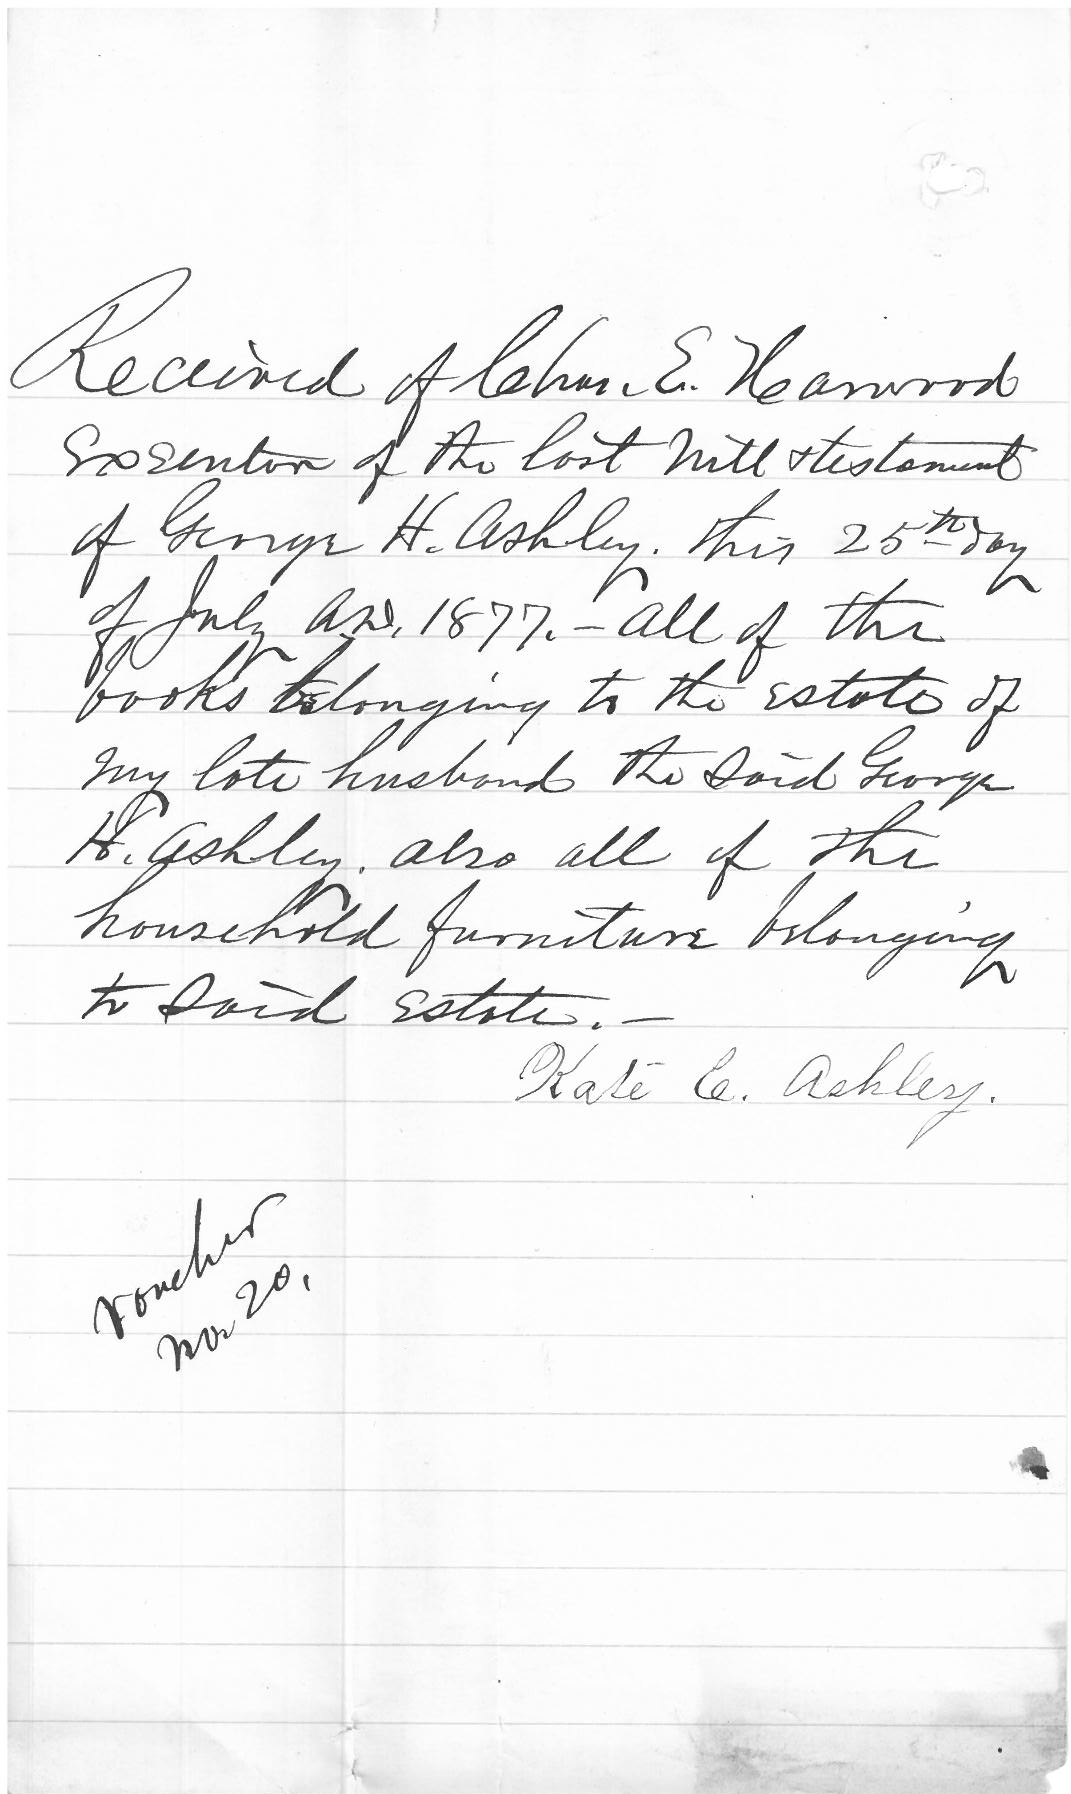 Received of Chas. E. Yearwood
Executor of the last Will & testament
of George H. Ashley. this 25th day
of July A.D. 1877. - all of the
books belonging to the estate of
my late husband the said George
H. Ashley. also all of the
household furniture belonging
to said estate. -
Kate C. Ashley.
Voucher
No 20.